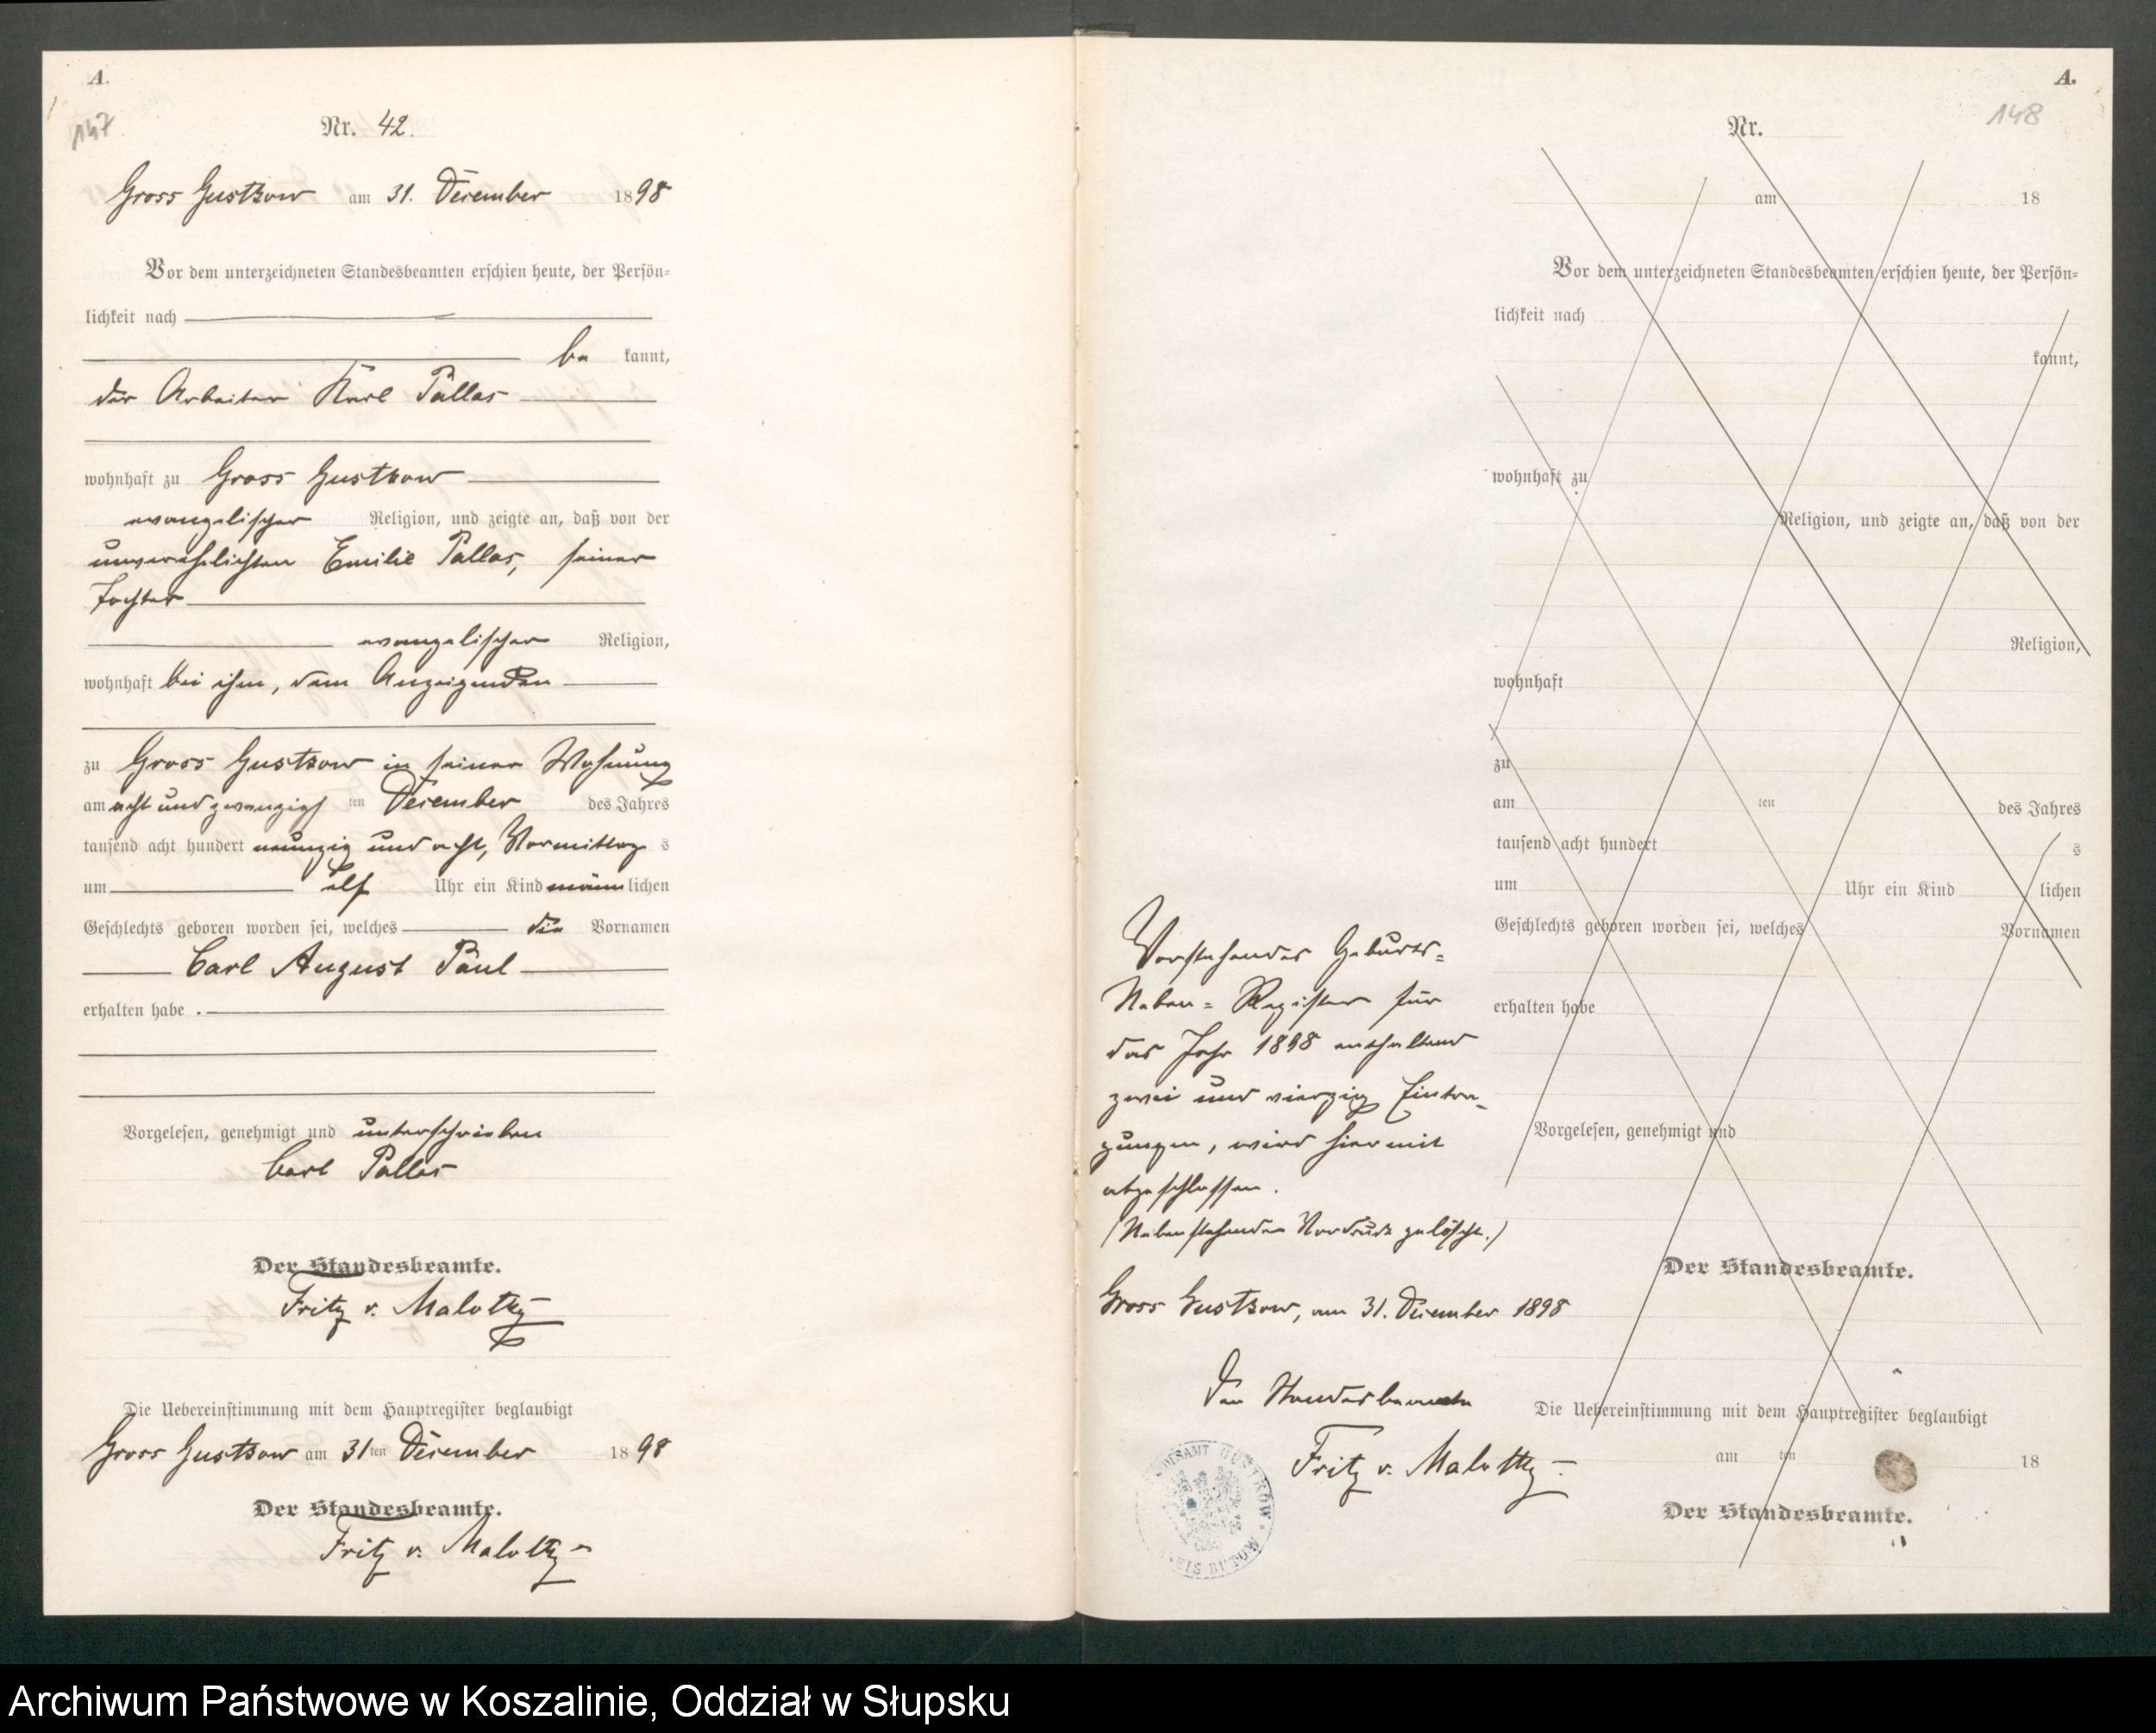 A.
147
Nr. 42.
Gross Gustkow am 31. December 1898
Vor dem unterzeichneten Standesbeamten erschien heute, der Persön=
lichkeit nach
be kannt,
der Arbeiter Karl Pallas
wohnhaft zu Gross Gustkow
evangelischer Religion, und zeigte an, daß von der
unverehelichten Emilie Pallas, seiner
Tochter
evangelischer Religion,
wohnhaft bei ihm, dem Anzeigenden
zu Gross Gustkow in seiner Wohnung
am acht und zwanzigs ten December des Jahres
tausend acht hundert neunzig und acht, Vormittag s
um elf Uhr ein Kind männlichen
Geschlechts geboren worden sei, welches die Vornamen
Carl August Paul
erhalten habe.
Vorgelesen, genehmigt und unterschrieben
Carl Pallas
Der Standesbeamte.
Fritz v. Malottky
Die Uebereinstimmung mit dem Hauptregister beglaubigt
Gross Gustkow am 31ten December 1898
Der Standesbeamte.
Fritz v. Malottky
A.
148
Nr.
am 18
Vor dem unterzeichneten Standesbeamten erschien heute, der Persön=
lichkeit nach
kannt,
wohnhaft zu
Religion, und zeigte an, daß von der
Religion,
wohnhaft
zu
am ten des Jahres
tausend acht hundert s
um Uhr ein Kind lichen
Geschlechts geboren worden sei, welches Vornamen
erhalten habe
Vorgelesen, genehmigt und
Der Standesbeamte.
Die Uebereinstimmung mit dem Hauptregister beglaubigt
am ten 18
Der Standesbeamte.
Vorstehendes Geburts=
Neben=Register für
das Jahr 1898 enthaltend
zwei und vierzig Eintra-
gungen, wird hiermit
abgeschlossen.
(Nebenstehender Vordruck gelöscht.)
Gross Gustkow, am 31. December 1898
Der Standesbeamte
Fritz v. Malottky
GUSTKOW
BUTOW
Archiwum Państwowe w Koszalinie, Oddział w Słupsku